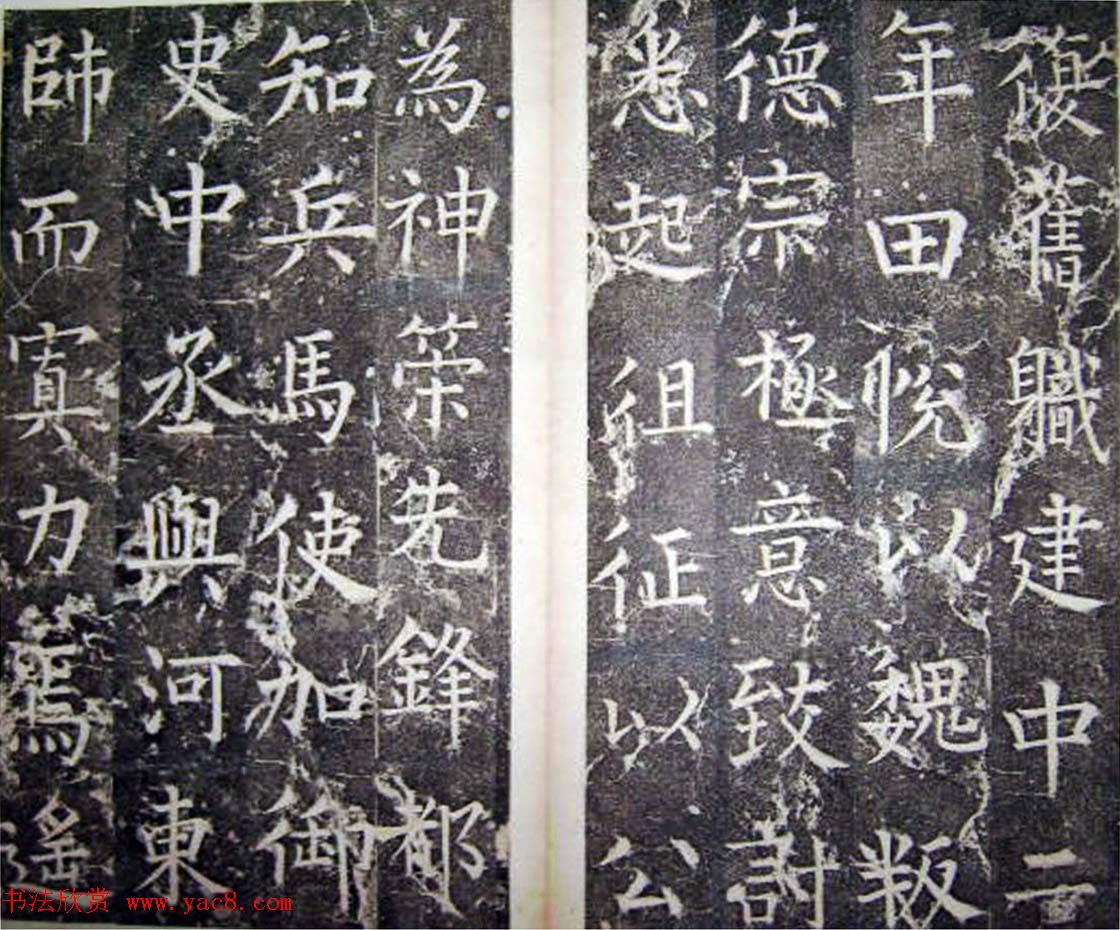 復舊職建中二
年田悅以魏叛
德宗極意致討
悉起徂征以公
為神策先鋒都
知兵馬使加御
史中丞與河東
師而寘力焉遥
书法欣赏 www.yac8.com